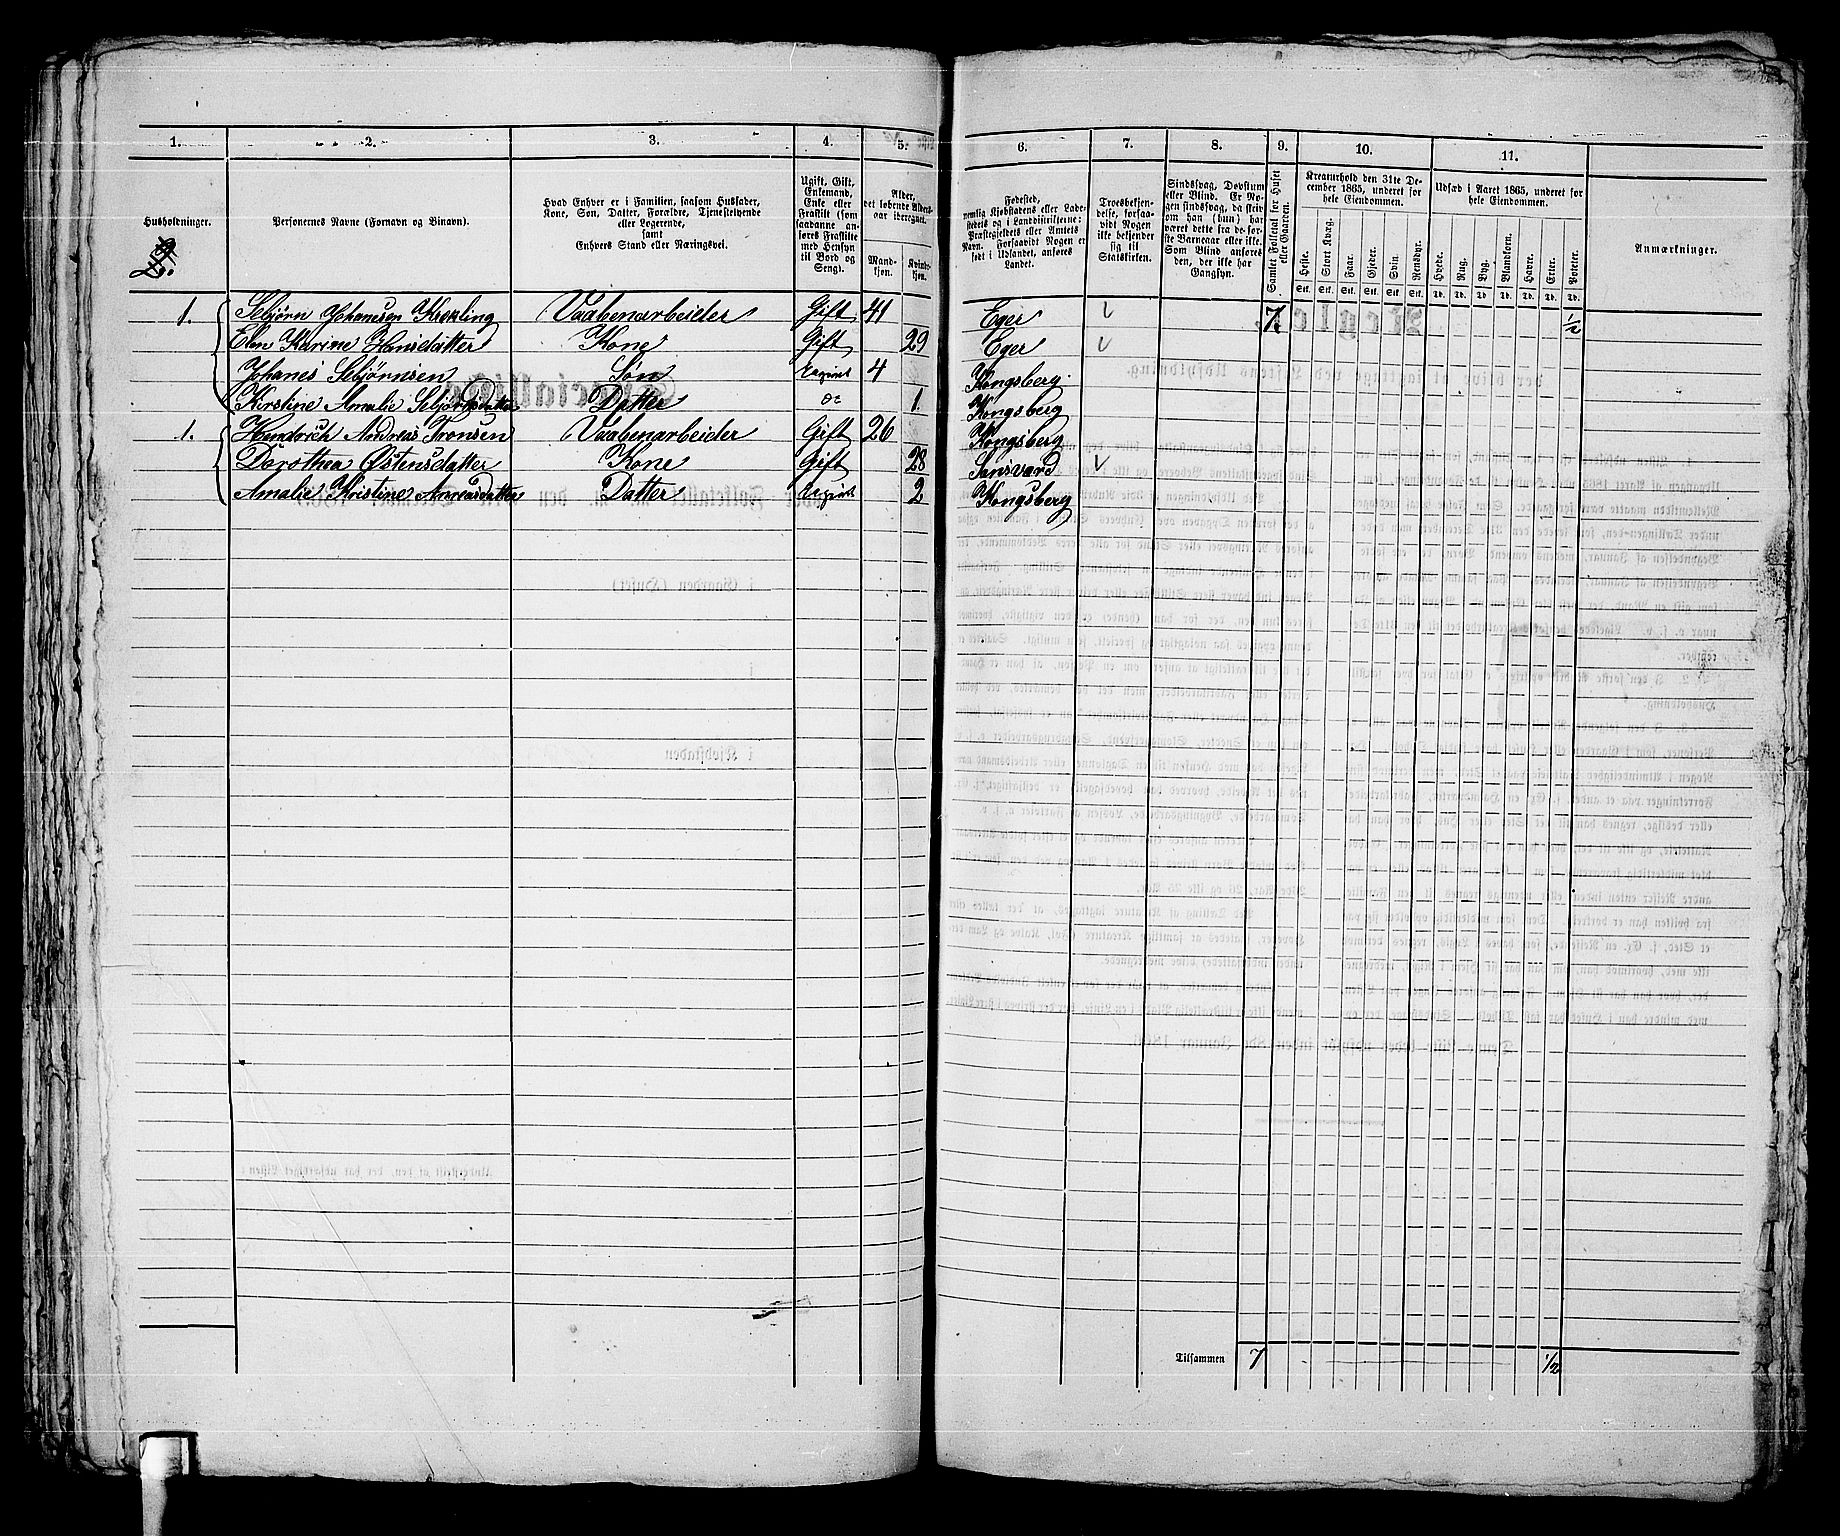 1.
2.
3.
4.
5.
6.
7.
8.
9.
10.
11.
Husholdninger.
2.
Personernes Navne (Fornavn og Binavn).
Hvad Enhver er i Familien, saasom Husfader,
Kone, Søn, Datter, Forældre, Tjenestetyende
eller Logerende,
samt
Enhvers Stand eller Næringsvei.
Ugift, Gift,
Enkemand,
Enke eller
Fraskilt (som
saadanne an-
føres Fraskilte
med Hensyn
til Bord og
Seng).
Alder,
det løbende Alders-
aar iberegnet.
Mand-
kjøn.
Kvinde-
kjøn.
Fødested,
nemlig Kjøbstadens eller Lade-
stedets og i Landdistrikterne:
Præstegjeldets eller Amtets
Navn. Forsaavidt Nogen er
født i Udlandet, anføres
Landet.
Troesbekjen-
delse, forsaa-
vidt Nogen
ikke bekjender
sig til
Statskirken.
Sindssvag, Døvstum
eller Blind. Er No-
gen sindssvag, da skriv
om han (hun) har
været dette fra de før-
ste Barneaar eller ikke.
Som Blind anføres
den, der ikke har
Gangsyn.
Samlet Folketal for Huset
eller Gaarden.
Kreaturhold den 31te De-
cember 1865, underet for
hele Eiendommen.
Heste.
Stort Kvæg.
Faar.
Gjeder.
Svin.
Rensdyr.
Stk. Stk. Stk. Stk. Stk. Stk.
Udsæd i Aaret 1865, underet for
hele Eiendommen.
Hvede.
Rug.
Byg.
Blandkorn.
Havre.
Erter.
Poteter.
Td. Td. Td. Td. Td. Td. Td.
Anmærkninger.
1. Sebjørn Johansen Krekling Vaabenarbeider Gift 41 Eger 7. 1/2
Elen Karine Hansdatter Kone Gift 29 Eger
Johanes Sebjørnsen Søn Ugivt 4 Kongsberg.
Kirstine Amalie Sebjørnsdatter Datter 1. Kongsberg
1. Hendrich Andreas Tronsen Vaabenarbeider Gift 26 Kongsberg
Dorothea Østensdatter Kone Gift 28 Sansværd
Amalie Kristine Andreasdatter Datter Ugivt 2 Kongsberg
Tilsammen 7 1/2